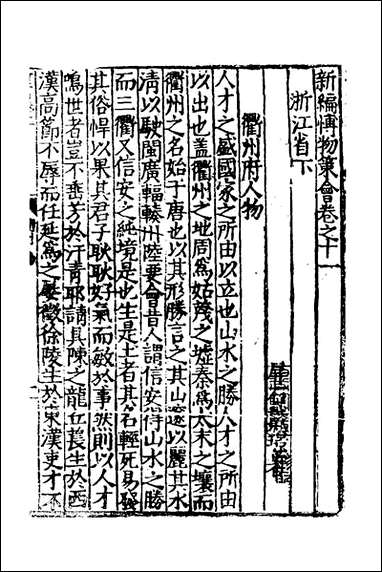 新編博物策會卷之十一
浙江省下
衢州府人物
人才之盛國家之所由以立也山水之勝人才之所由
以出也蓋衢州之地周為姑蔑之墟秦為太末之壤而
衢州之名始于唐也以其形勝言之其山邃以麗其水
清以駛閩廣輻輳州陸要會昔人謂信安得山水之勝
而三衢又信安之純境是也生是土者其名輕死易發
其俗悍以果其君子耿耿好氣而敏於事然則以人才
鳴世者豈不垂芳於汗青耶請具陳之龍丘萇生於西
漢高節不辱而任延為之屢徵徐陵生於東漢吏才不